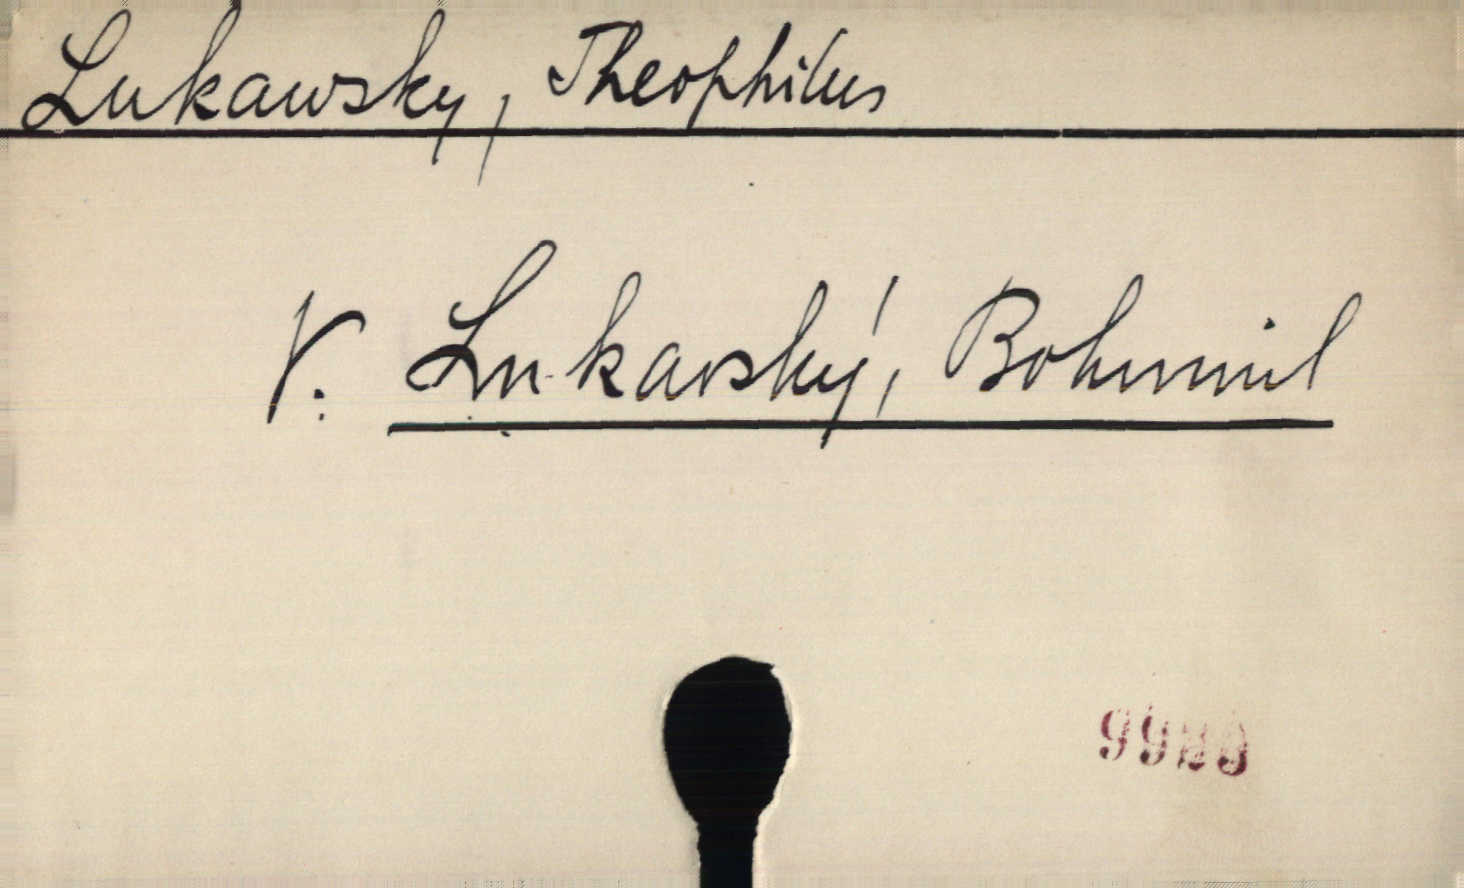 Lukawsky, Theophilus
V. Lukavský, Bohumil